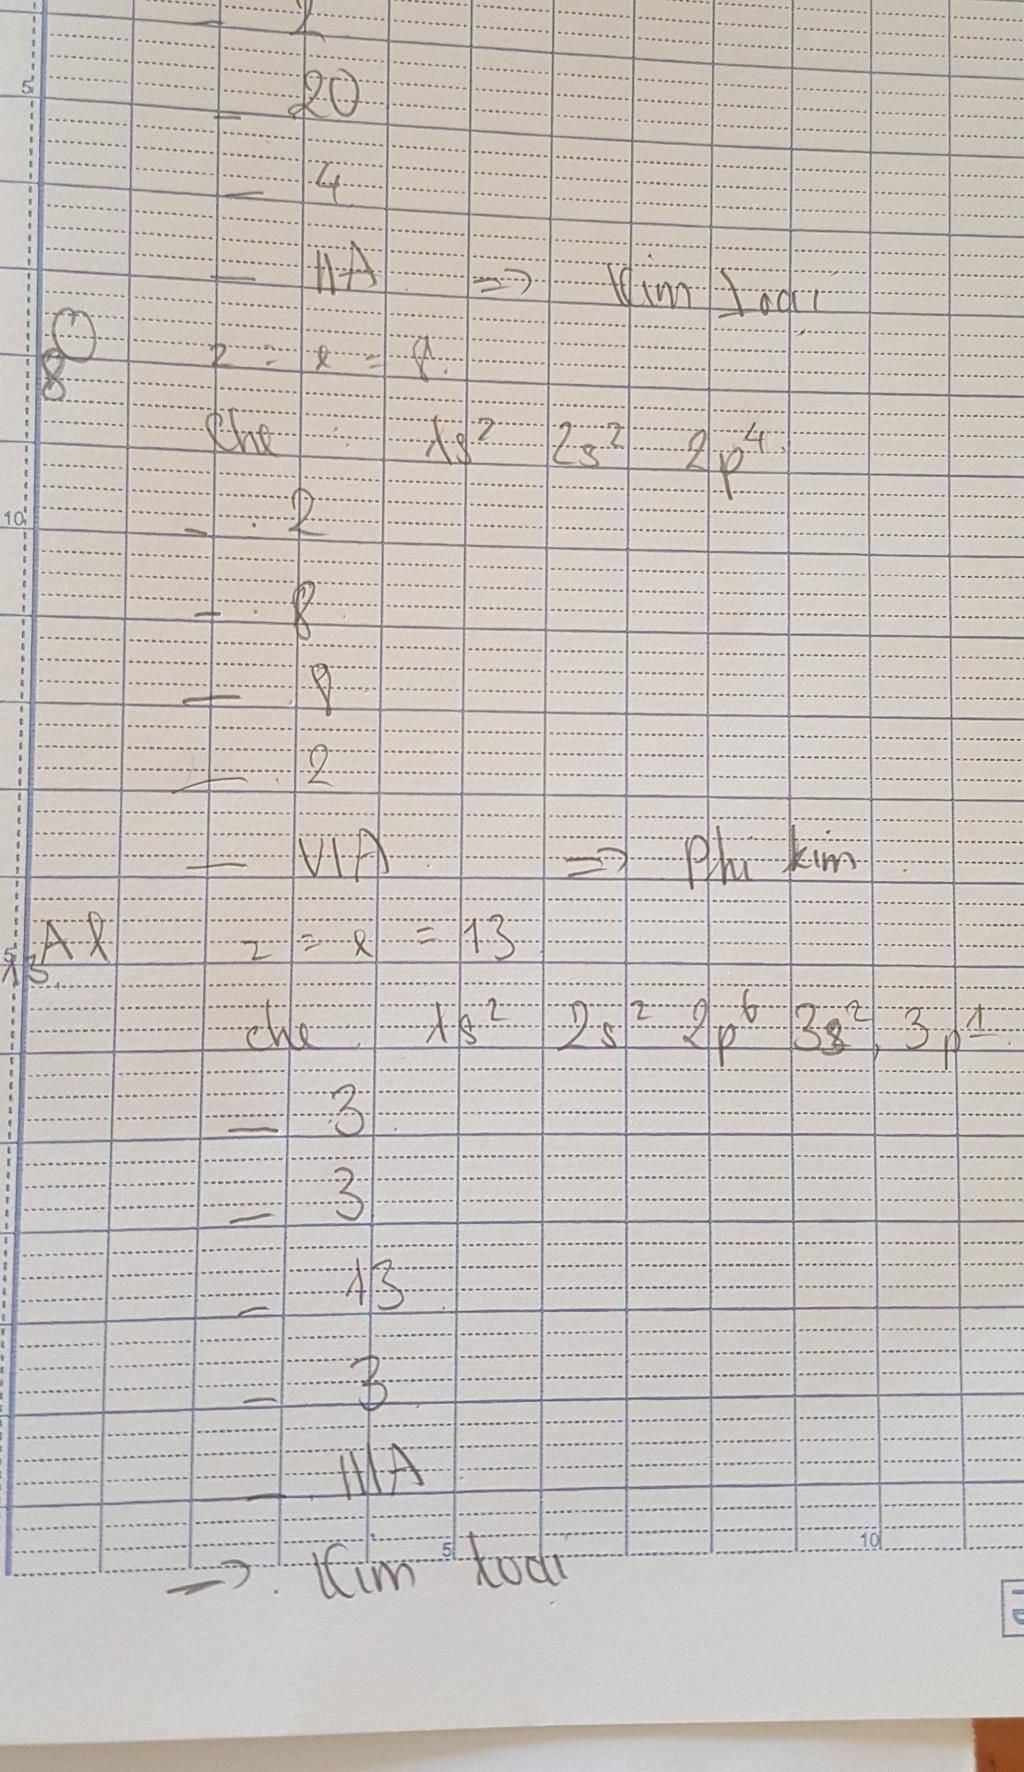 2
_ 20
_ 4
_ IIA => Kim loại
₈O z = e = 8.
che : 1s² 2s² 2p⁴
_ . 2
_ . 8
_ 8
_ 2
_ VIA => Phi kim
₁₃Al z = e = 13
che 1s² 2s² 2p⁶ 3s², 3p¹
_ 3
_ 3
_ 13
_ 3
_ IIIA
=> Kim loại
5
10
5
5
10